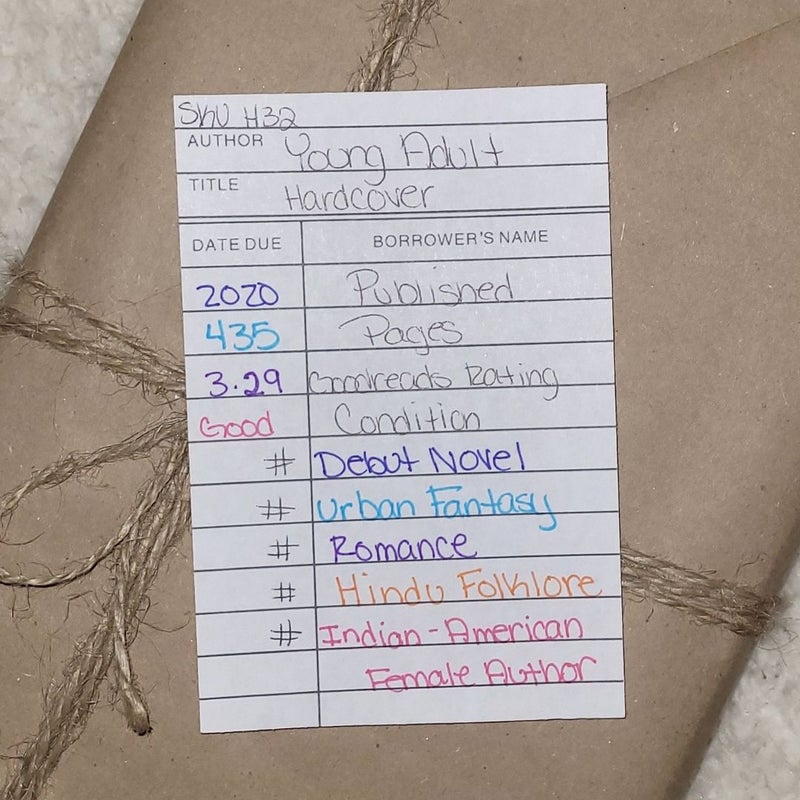 SKU H32
AUTHOR Young Adult
TITLE Hardcover
DATE DUE BORROWER'S NAME
2020 Published
435 Pages
3.29 Goodreads Rating
Good Condition
# Debut Novel
# Urban Fantasy
# Romance
# Hindu Folklore
# Indian-American
Female Author